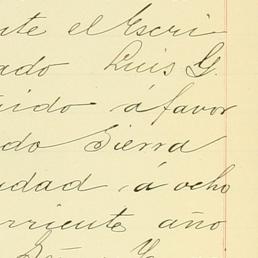 nte el Escri
ado Luis G.
uido á favor
do Sierra
udad, á ocho
orriente año